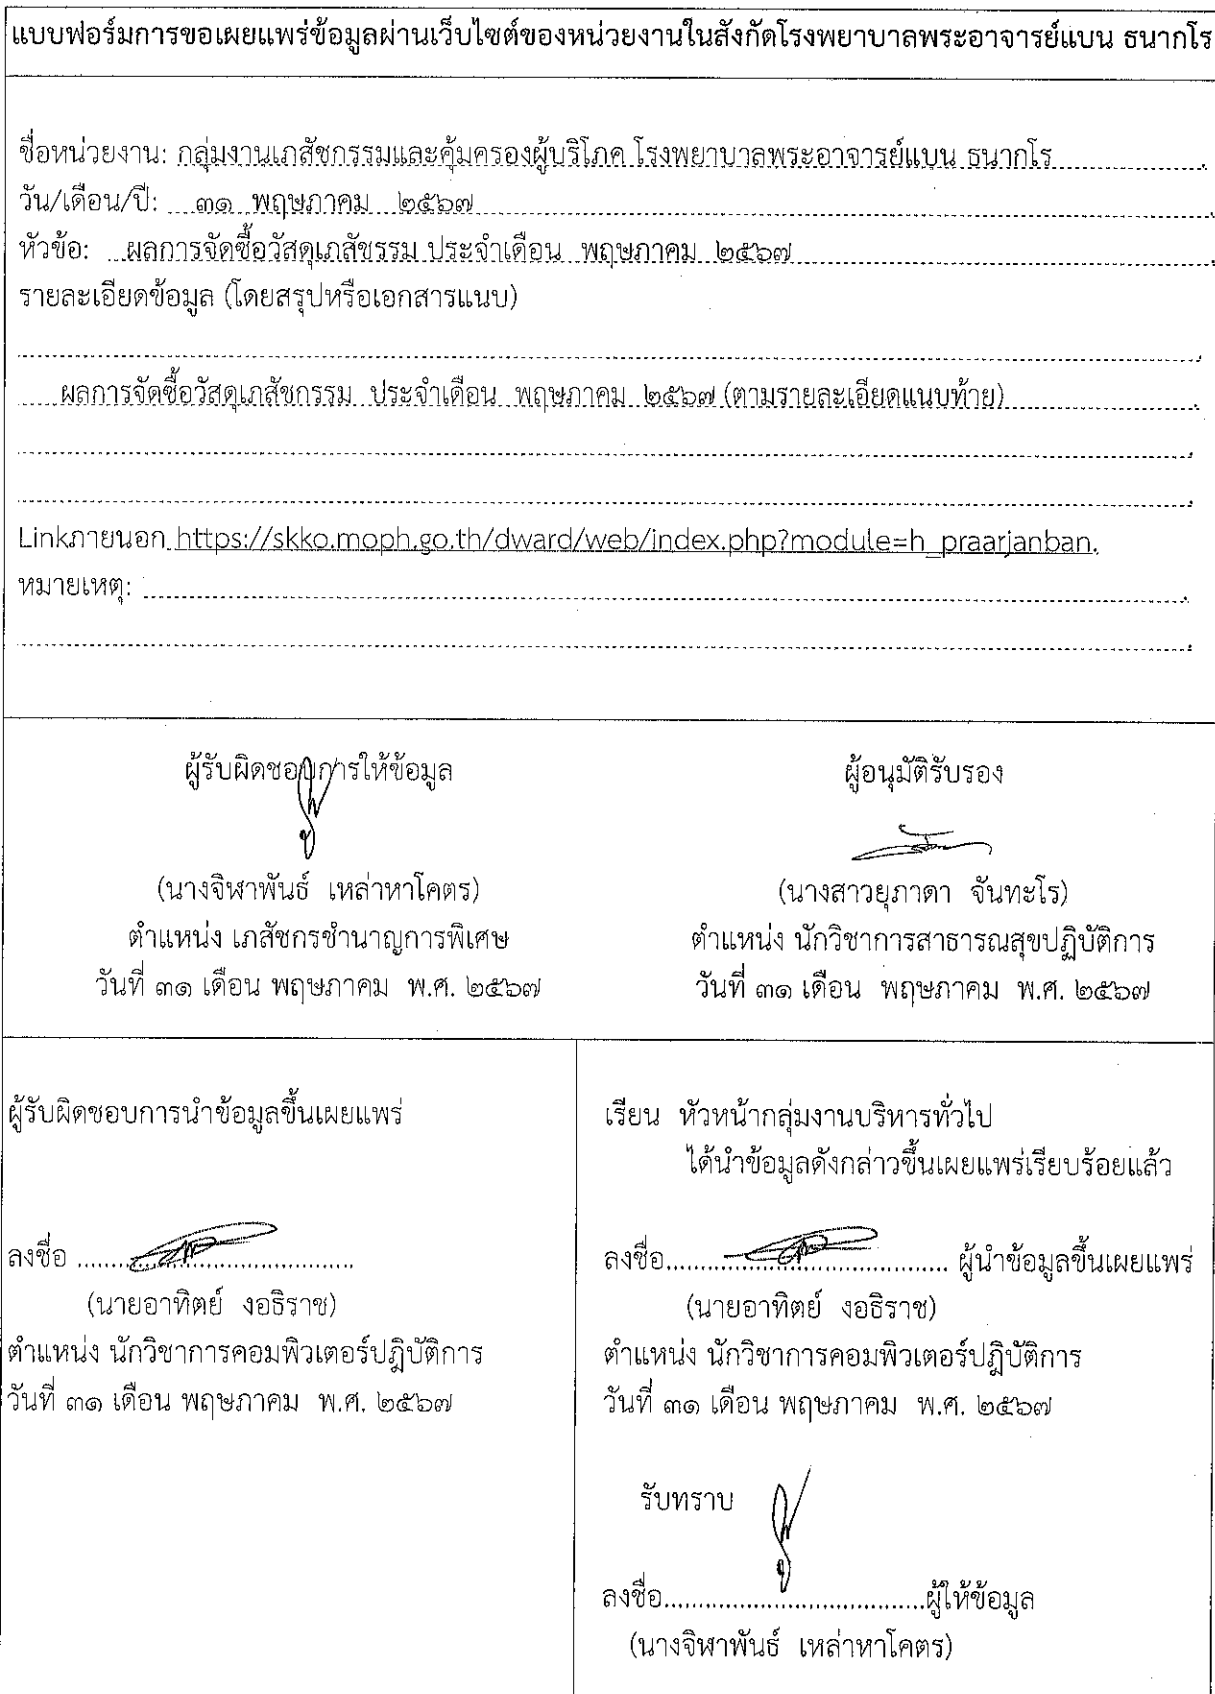 แบบฟอร์มการขอเผยแพร่ข้อมูลผ่านเว็บไซต์ของหน่วยงานในสังกัดโรงพยาบาลพระอาจารย์แบน ธนากโร
ชื่อหน่วยงาน: กลุ่มงานเภสัชกรรมและคุ้มครองผู้บริโภค โรงพยาบาลพระอาจารย์แบน ธนากโร
วัน/เดือน/ปี: ๓๑ พฤษภาคม ๒๕๖๗
หัวข้อ: ผลการจัดซื้อวัสดุเภสัชรรม ประจำเดือน พฤษภาคม ๒๕๖๗
รายละเอียดข้อมูล (โดยสรุปหรือเอกสารแนบ)
ผลการจัดซื้อวัสดุเภสัชกรรม ประจำเดือน พฤษภาคม ๒๕๖๗ (ตามรายละเอียดแนบท้าย)
Linkภายนอก https://skko.moph.go.th/dward/web/index.php?module=h_praarjanban.
หมายเหตุ:
ผู้รับผิดชอบการให้ข้อมูล
(นางจิฬาพันธ์ เหล่าหาโคตร)
ตำแหน่ง เภสัชกรชำนาญการพิเศษ
วันที่ ๓๑ เดือน พฤษภาคม พ.ศ. ๒๕๖๗
ผู้อนุมัติรับรอง
(นางสาวยุภาดา จันทะโร)
ตำแหน่ง นักวิชาการสาธารณสุขปฏิบัติการ
วันที่ ๓๑ เดือน พฤษภาคม พ.ศ. ๒๕๖๗
ผู้รับผิดชอบการนำข้อมูลขึ้นเผยแพร่
ลงชื่อ ........................................
(นายอาทิตย์ งอธิราช)
ตำแหน่ง นักวิชาการคอมพิวเตอร์ปฎิบัติการ
วันที่ ๓๑ เดือน พฤษภาคม พ.ศ. ๒๕๖๗
เรียน หัวหน้ากลุ่มงานบริหารทั่วไป
ได้นำข้อมูลดังกล่าวขึ้นเผยแพร่เรียบร้อยแล้ว
ลงชื่อ........................................ ผู้นำข้อมูลขึ้นเผยแพร่
(นายอาทิตย์ งอธิราช)
ตำแหน่ง นักวิชาการคอมพิวเตอร์ปฎิบัติการ
วันที่ ๓๑ เดือน พฤษภาคม พ.ศ. ๒๕๖๗
รับทราบ
ลงชื่อ.....................................ผู้ให้ข้อมูล
(นางจิฬาพันธ์ เหล่าหาโคตร)